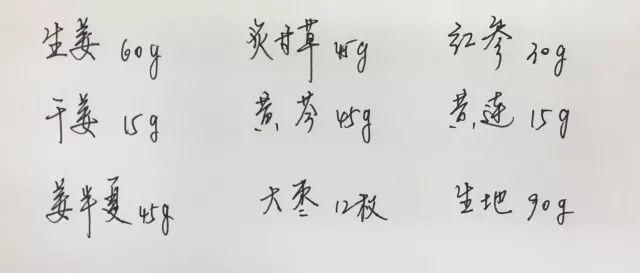 生姜 60g 炙甘草 45g 红参 30g
干姜 15g 黄芩 45g 黄连 15g
姜半夏 45g 大枣 12枚 生地 90g